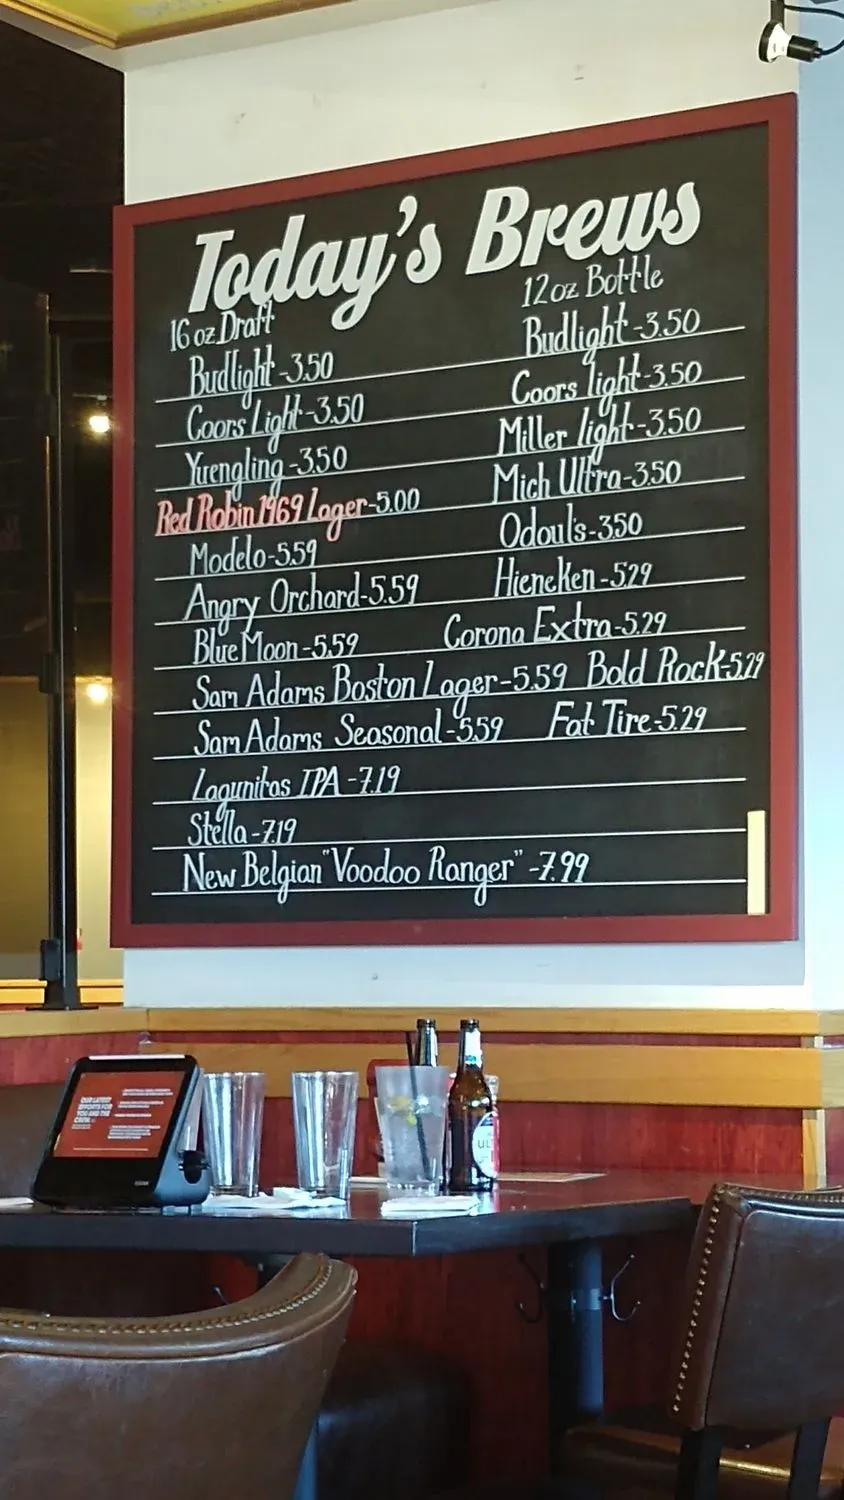 Today's Brews
16 oz Draft
Budlight -3.50
Coors Light -3.50
Yuengling -3.50
Red Robin 1969 Lager -5.00
Modelo -5.59
Angry Orchard -5.59
Blue Moon -5.59
Sam Adams Boston Lager -5.59
Sam Adams Seasonal -5.59
Lagunitas IPA -7.19
Stella -7.19
New Belgian "Voodoo Ranger" -7.99
12 oz Bottle
Budlight -3.50
Coors light -3.50
Miller light -3.50
Mich Ultra -3.50
Odoul's -3.50
Hieneken -5.29
Corona Extra -5.29
Bold Rock -5.29
Fat Tire -5.29
OUR LATEST
EFFORTS FOR
YOU AND THE
CREW.